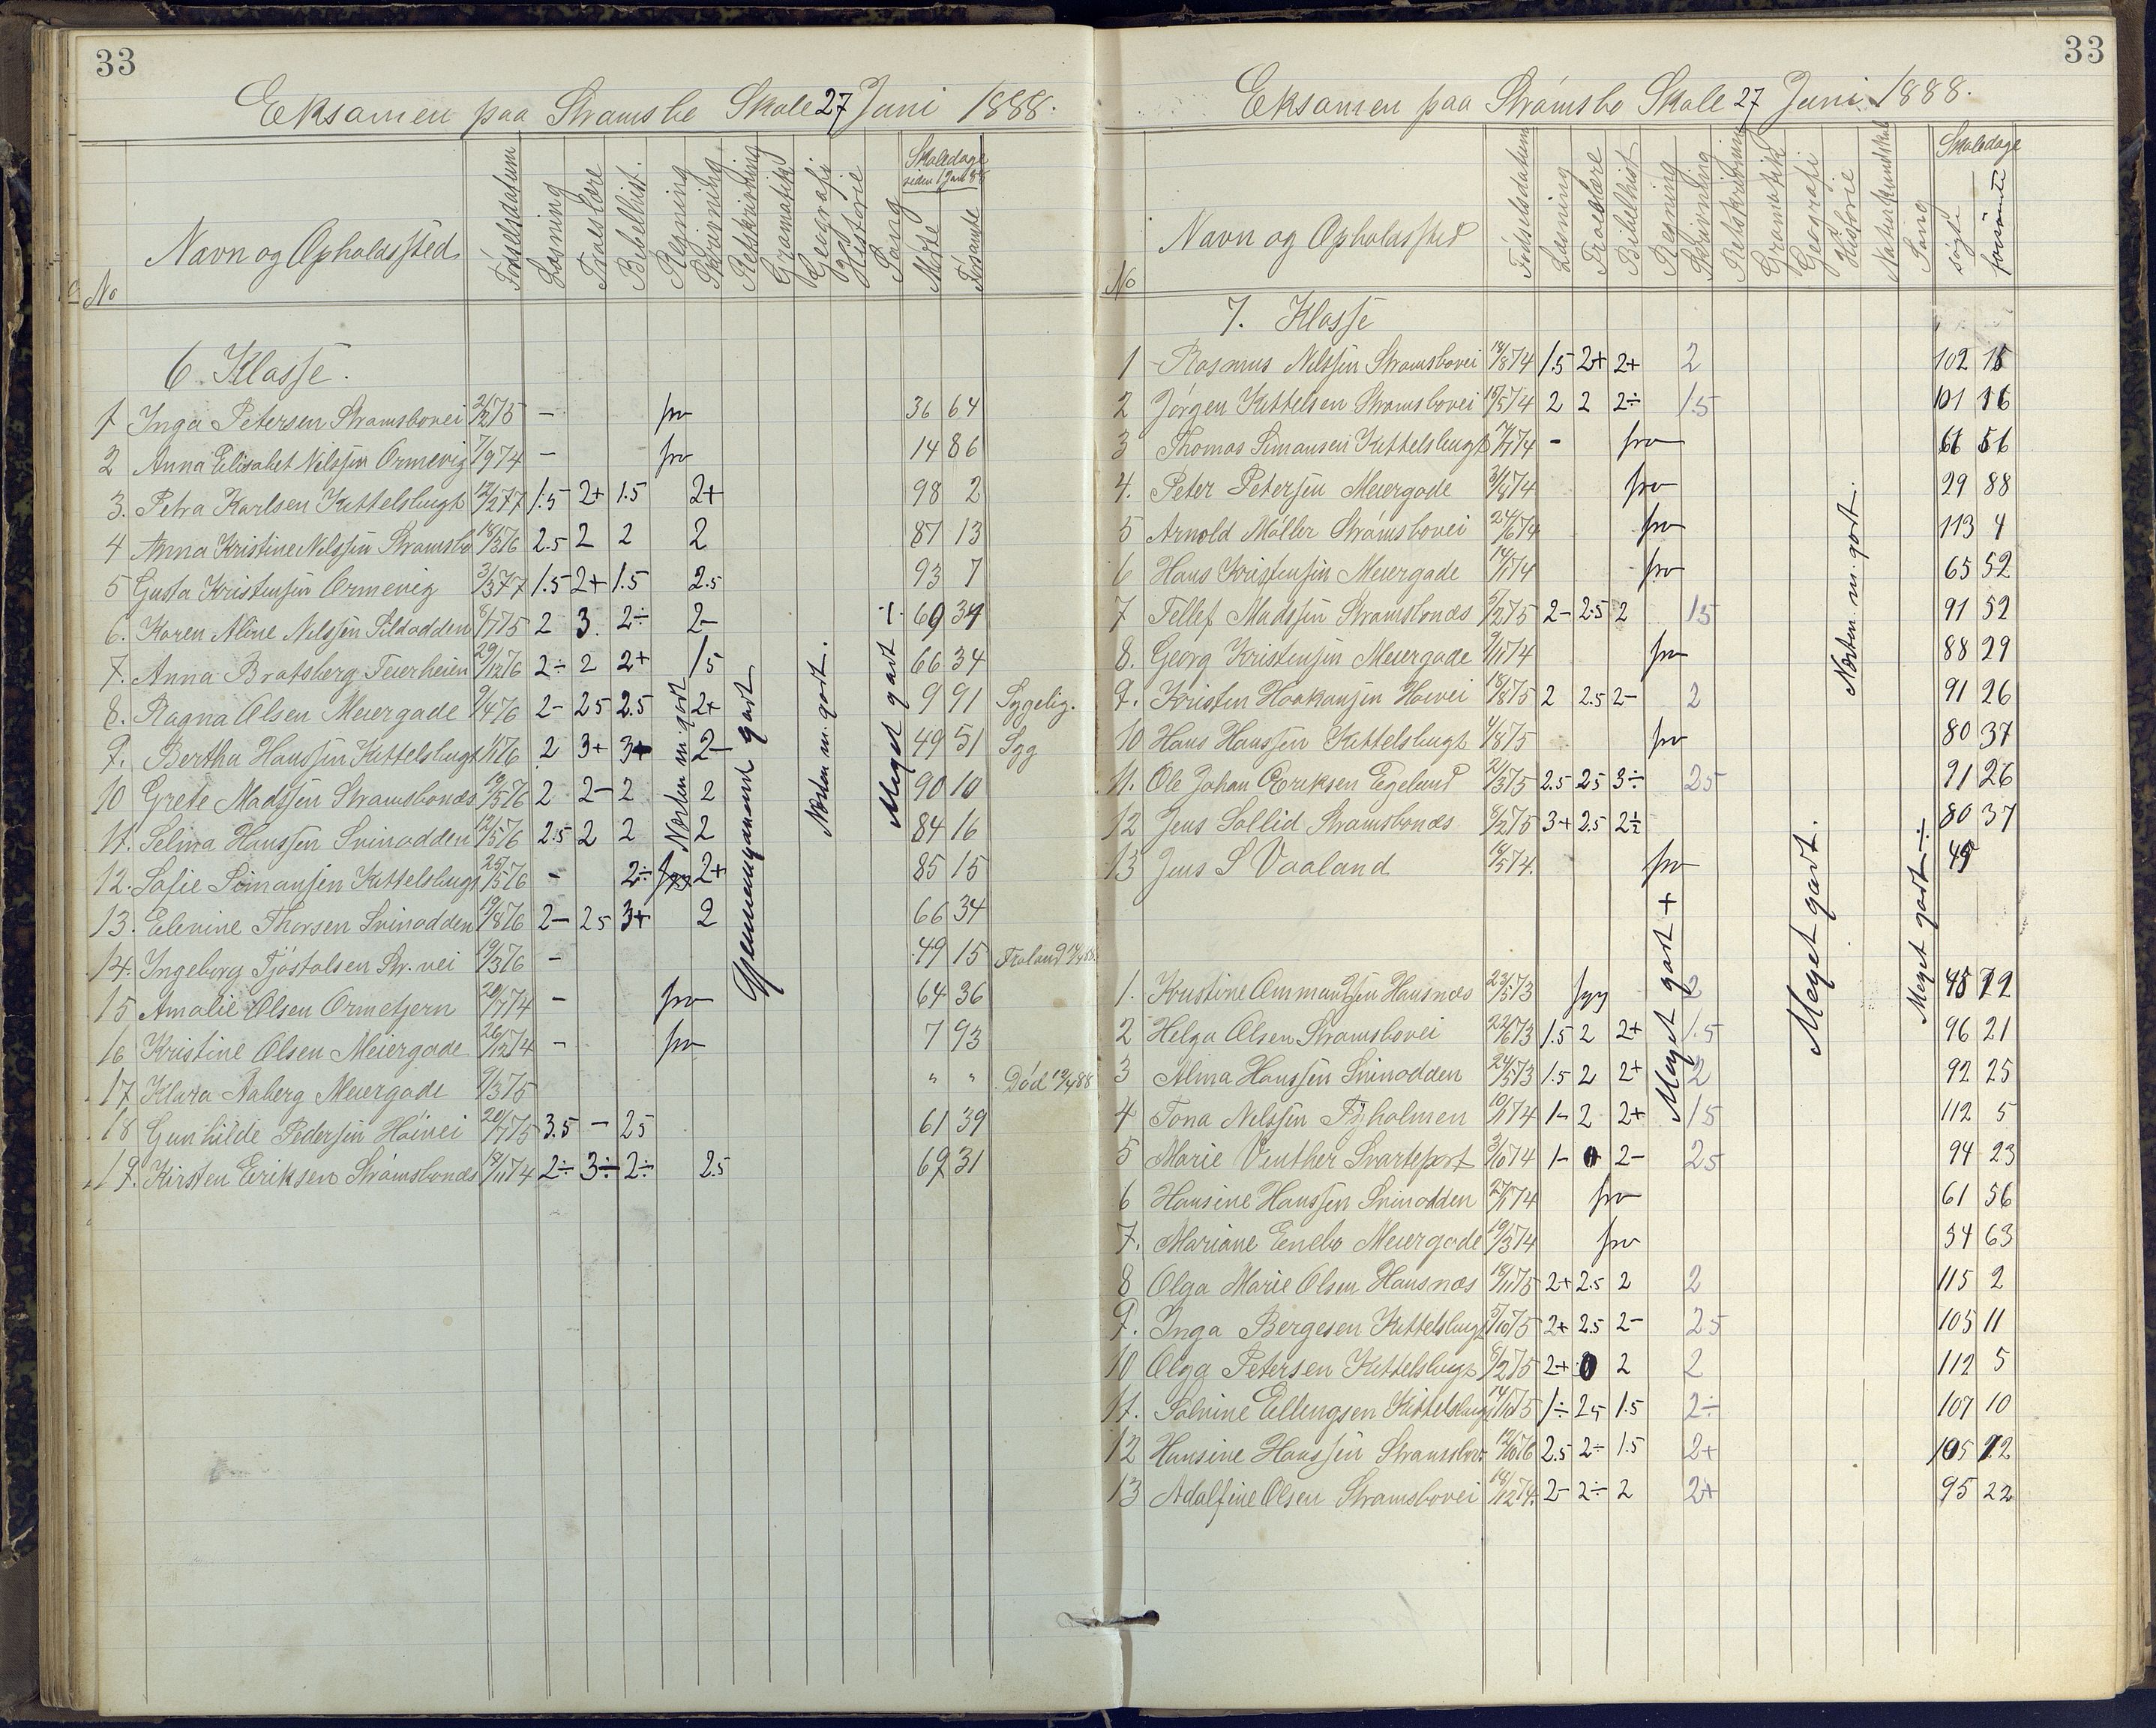 33
Eksamen paa Strømsbo Skole 27 Juni 1888.
No
Navn og Opholdssted
Fødselsdatum
Læsning
Troeslære
Bibelhist.
Regning
Skrivning
Retskrivning
Gramatik
Geografi
og
Historie
Sang
Skoledage
siden 1 Jan 88
Mødte
Forsømte
6. Klasse.
1 Inga Petersen Strømsbovei 2/275 – frv 36 64
2 Anna Elisabet Nilssen Ormevig 7/974 – frv 14 86
3. Petra Karlsen Kittelsbugt 12/277 1.5 2+ 1.5 2+ 98 2
4 Anna Kristine Nilssen Strømsbo 18/376 2.5 2 2 2 87 13
5 Gusta Kristensen Ormevig 3/377 1.5 2+ 1.5 2.5 93 7
6. Karen Aline Nilssen Sildodden 8/775 2 3. 2÷ 2– -1- 69 34
7. Anna Bratsberg Teierheien 29/1276 2÷ 2 2+ 15 66 34
8. Ragna Olsen Meiergade 9/476 2– 25 2.5 2+ 9 91 Sygelig.
9. Bertha Hanssen Kittelsbugt 1/176 2 3+ 3+ 2– 49 51 Syg
10 Grete Madssen Strømsbonæs 19/576 2 2– 2 2 90 10
11. Selma Hanssen Svinodden 12/576 2.5 2 2 2 84 16
12. Sofie Simonsen Kittelsbugt 25/576 – 2÷ 2+ 85 15
13. Elevine Thorsen Svinodden 19/876 2– 25 3+ 2 66 34
14. Ingeborg Tjöstolsen Str. vei 19/376 – 49 15 Froland
15 Amalie Olsen Ormetjern 20/774 – frv 64 36
16 Kristine Olsen Meiergade 26/1274 – frv 7 93
17 Klara Aaberg Meiergade 9/375 " " Död 12/4 88
18 Gunhilde Pedersen Höivei 20/775 3.5 – 25 61 39
19. Kirsten Eriksen Strømsbonæs 18/1174 2÷ 3÷ 2÷ 2.5 69 31
Næsten m. godt
Gjennemgaaende godt
Næsten m. godt.
Meget godt
33
Eksamen paa Strømsbo Skole 27 Juni 1888.
No
Navn og Opholdssted
Fødselsdatum
Læsning
Troeslære
Bibelhist
Regning
Skrivning
Retskrivning
Gramatik
Geografi
Historie
Naturkundskab
Sang
Skoledage
søgte
forsømte
7. Klasse
1 Rasmus Nilssen Strømsbovei 18/874 1.5 2+ 2+ 2 102 15
2 Jørgen Kittelsen Strømsbovei 18/574 2 2 2÷ 1.5 101 16
3 Thomas Simonsen Kittelsbugt 17/774 – frv 61 56
4. Peter Petersen Meiergade 3/874 frv 29 88
5 Arnold Møller Strømsbovei 24/674 frv 113 4
6 Hans Kristensen Meiergade 14/174 frv 65 52
7 Tellef Madssen Strømsbonæs 5/275 2– 2.5 2 15 91 52
8. Georg Kristensen Meiergade 9/1174 frv 88 29
9. Kristen Haakonsen Høivei 18/875 2 2.5 2– 2 91 26
10 Hans Hanssen Kittelsbugt 4/875 frv 80 37
11. Ole Johan Eriksen Egelund 2/375 2.5 25 3÷ 25 91 26
12 Jens Sollid Strømsbonæs 8/275 3+ 2.5 2½ 80 37
13 Jens S Vaaland 18/574. frv 49
1. Kristine Ommundsen Hansnæs 23/573 syg 2 45 72
2 Helga Olsen Strømsbovei 22/673 1.5 2 2+ 1.5 96 21
3 Alma Hanssen Svinodden 24/573 1.5 2 2+ 2 92 25
4 Tona Nilssen Tyholmen 10/174 1– 2 2+ 15 112 5
5 Marie Venther Svarteport 3/1074 1– 0 2– 25 94 23
6 Hansine Hanssen Svinodden 27/174 frv 61 56
7. Mariane Enebo Meiergade 19/374 frv 54 63
8 Olga Marie Olsen Hansnæs 18/1175 2+ 2.5 2 2 115 2
9. Inga Bergesen Kittelsbugt 5/1075 2+ 2.5 2– 25 105 11
10 Olga Petersen Kittelsbugt 8/275 2+ 0 2 2 112 5
11. Solvine Ellingsen Kittelsbugt 14/1075 1÷ 25 1.5 2÷ 107 10
12 Hansine Hanssen Strømsbov. 12/1076 2.5 2÷ 1.5 2+ 105 12
13 Adolfine Olsen Strømsbovei 18/1274. 2– 2÷ 2 2+ 95 22
Meget godt +
Meget godt.
Næsten m. godt.
Meget godt ÷